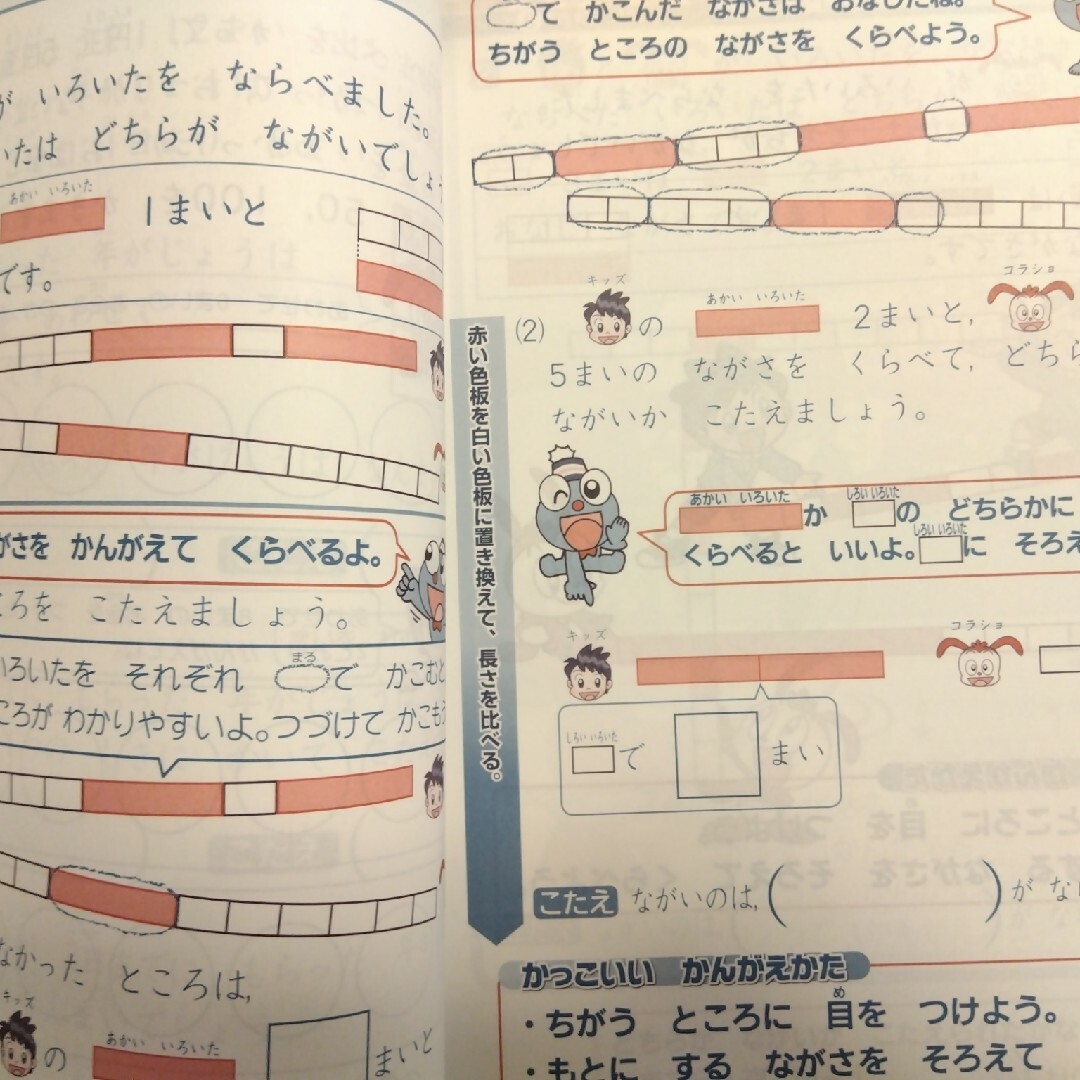 いろいたを ならべました。
いたは どちらが ながいでしょ
あかい いろいた
1まいと
です。
がさを かんがえて くらべるよ。
ころを こたえましょう。
いろいたを それぞれ まる で かこむと
ころが わかりやすいよ。つづけて かこもう
なかった ところは,
キッズ
の
あかい いろいた
まいと
で かこんだ ながさは おなじだね。
ちがう ところの ながさを くらべよう。
赤い色板を白い色板に置き換えて、長さを比べる。
(2)
キッズ
の
あかい いろいた
2まいと,
コラショ
5まいの ながさを くらべて, どちら
ながいか こたえましょう。
あかい いろいた
か
しろい いろいた
の どちらかに
くらべると いいよ。
しろい いろいた
に そろえ
キッズ
コラショ
しろい いろいた
で
まい
こたえ ながいのは,( )が
かっこいい かんがえかた
・ちがう ところに 目を つけよう。
め
・もとに する ながさを そろえて